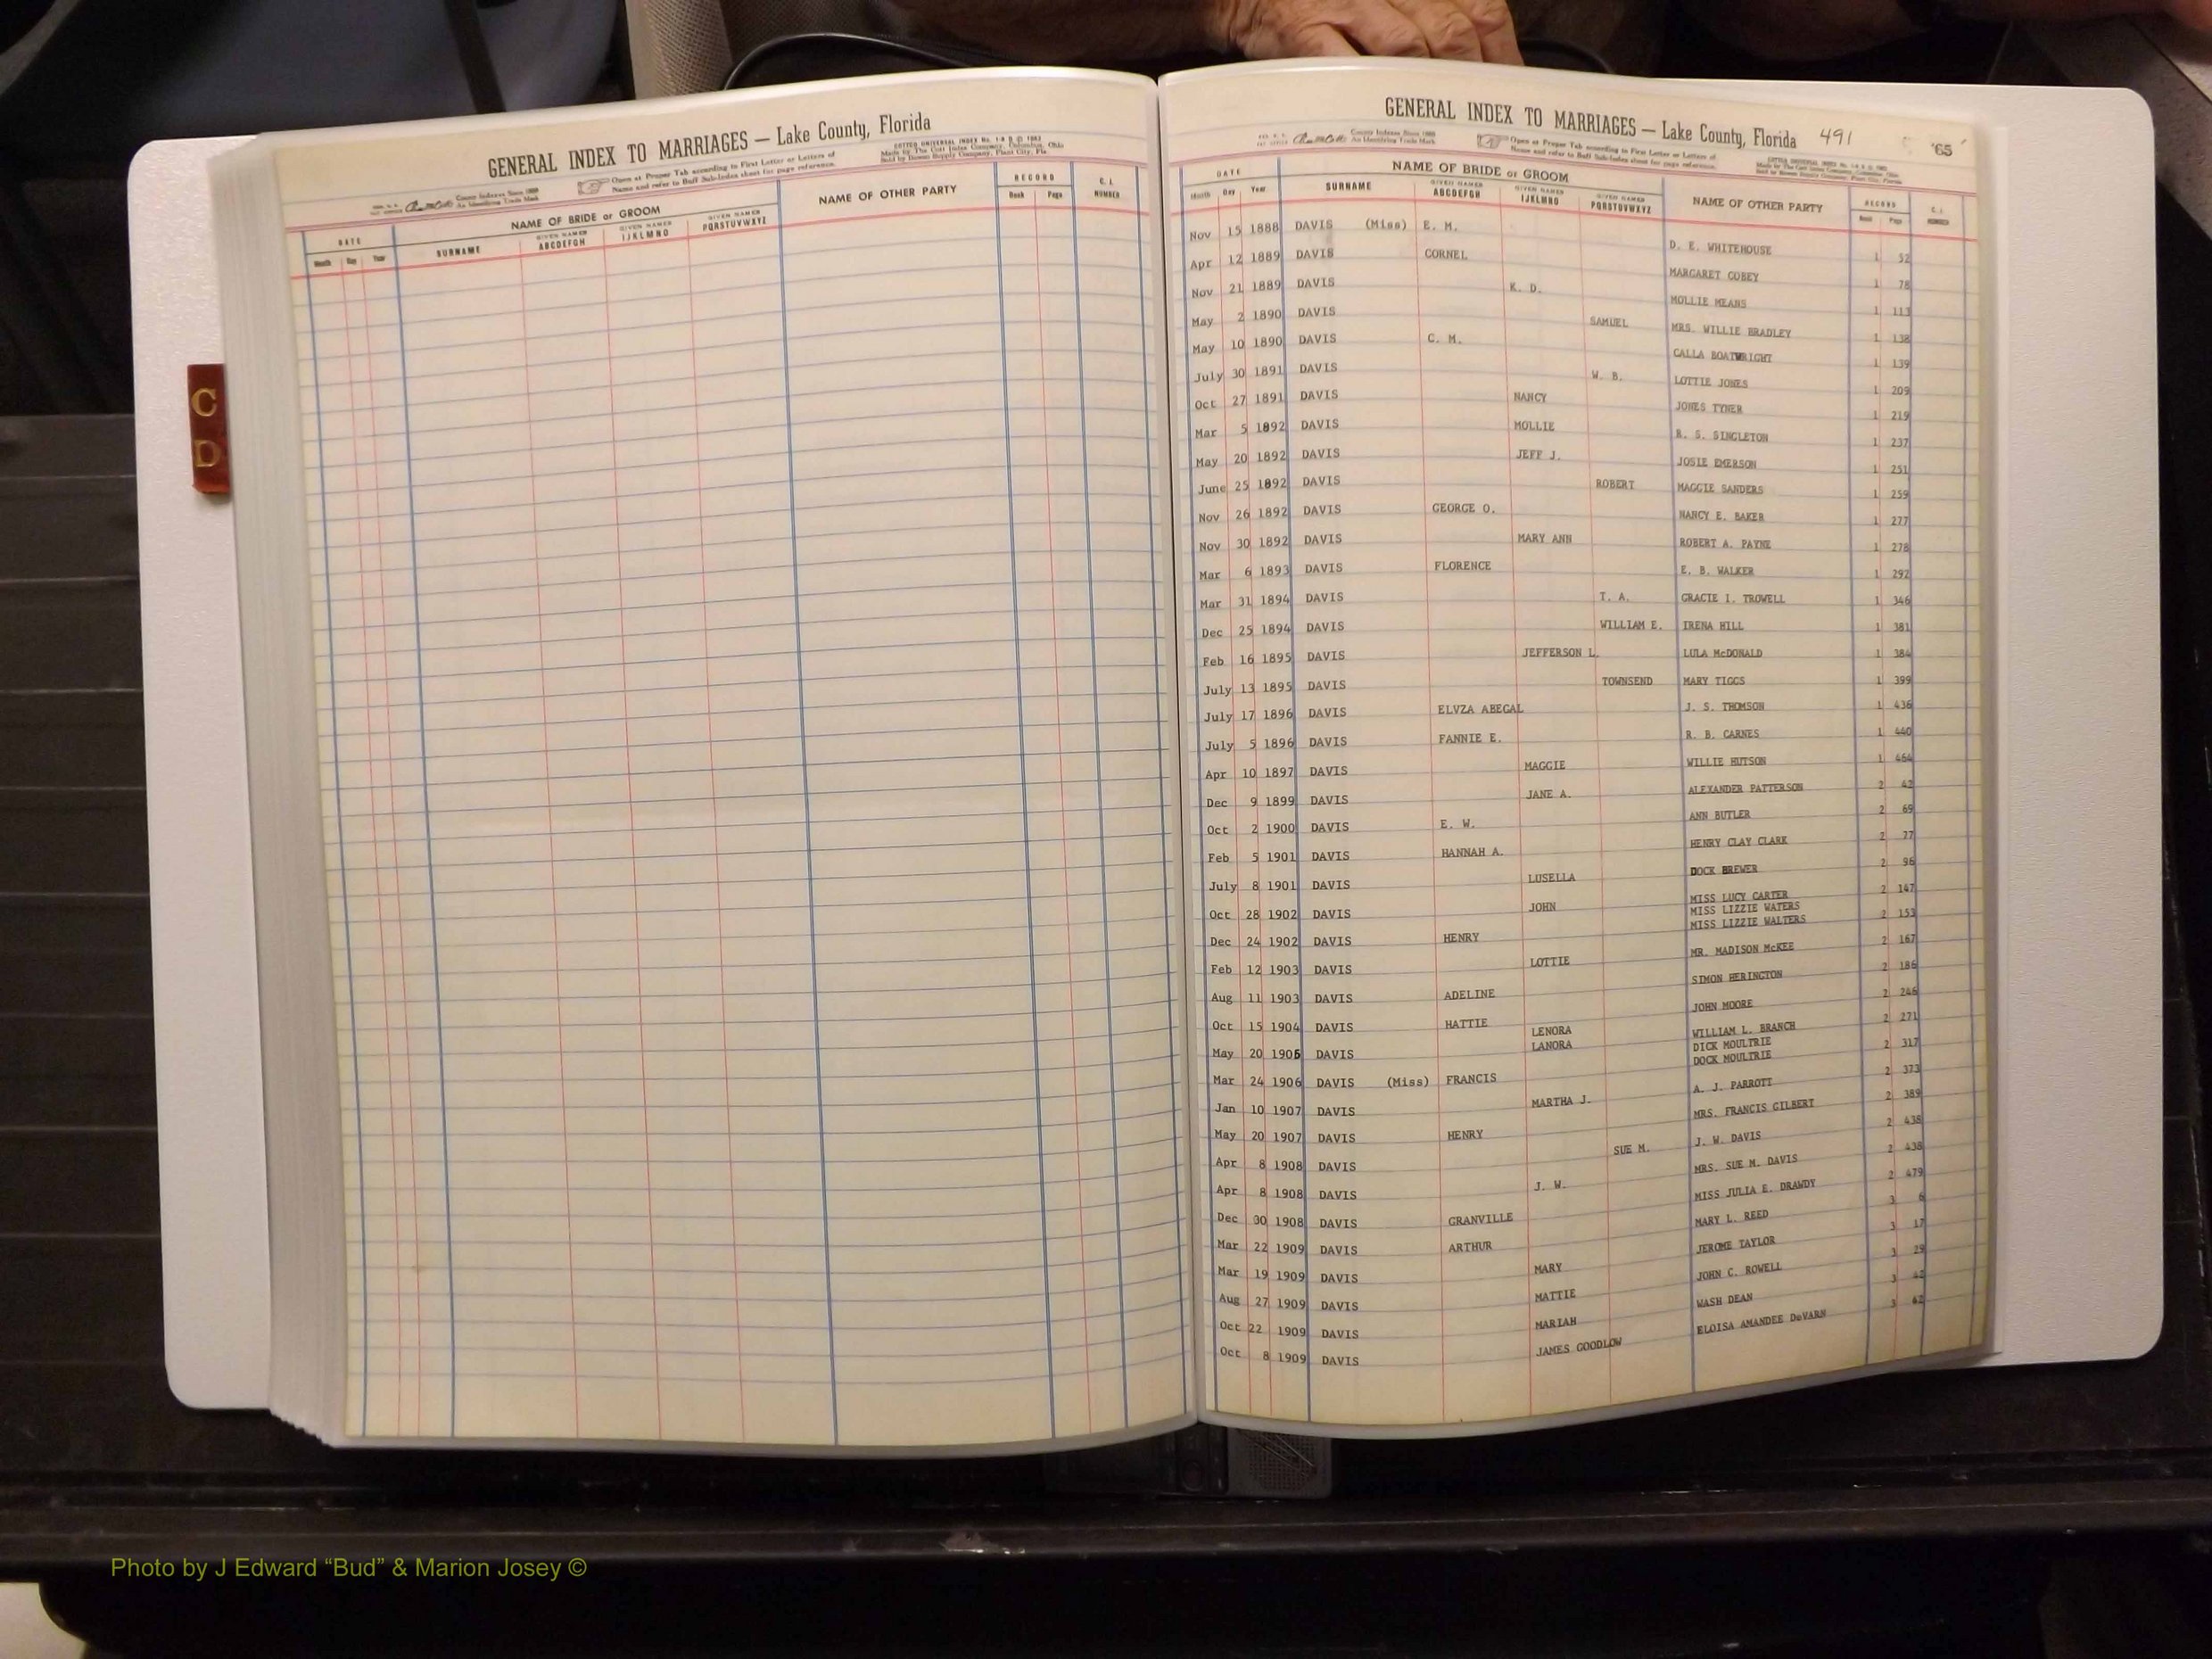 GENERAL INDEX TO MARRIAGES — Lake County, Florida
County Indexes Since 1888
An Identifying Trade Mark
Open at Proper Tab according to First Letter or Letters of
Name and refer to Buff Sub-Index sheet for page reference.
DATE NAME OF BRIDE or GROOM NAME OF OTHER PARTY RECORD C. I. NUMBER
Month Day Year SURNAME GIVEN NAMES ABCDEFGH GIVEN NAMES IJKLMNO GIVEN NAMES PQRSTUVWXYZ Book Page
C
D
GENERAL INDEX TO MARRIAGES — Lake County, Florida 491 '65
County Indexes Since 1888
An Identifying Trade Mark
Open at Proper Tab according to First Letter or Letters of
Name and refer to Buff Sub-Index sheet for page reference.
DATE NAME OF BRIDE or GROOM NAME OF OTHER PARTY RECORD C. I. NUMBER
Month Day Year SURNAME GIVEN NAMES ABCDEFGH GIVEN NAMES IJKLMNO GIVEN NAMES PQRSTUVWXYZ Book Page
Nov 15 1888 DAVIS (Miss) E. M. D. E. WHITEHOUSE 1 52
Apr 12 1889 DAVIS CORNEL MARGARET COBEY 1 78
Nov 21 1889 DAVIS K. D. MOLLIE MEANS 1 113
May 2 1890 DAVIS SAMUEL MRS. WILLIE BRADLEY 1 138
May 10 1890 DAVIS C. M. CALLA BOATWRIGHT 1 139
July 30 1891 DAVIS W. B. LOTTIE JONES 1 209
Oct 27 1891 DAVIS NANCY JONES TYNER 1 219
Mar 5 1892 DAVIS MOLLIE R. S. SINGLETON 1 237
May 20 1892 DAVIS JEFF J. JOSIE EMERSON 1 251
June 25 1892 DAVIS ROBERT MAGGIE SANDERS 1 259
Nov 26 1892 DAVIS GEORGE O. NANCY E. BAKER 1 277
Nov 30 1892 DAVIS MARY ANN ROBERT A. PAYNE 1 278
Mar 6 1893 DAVIS FLORENCE E. B. WALKER 1 292
Mar 31 1894 DAVIS T. A. GRACIE I. TROWELL 1 346
Dec 25 1894 DAVIS WILLIAM E. IRENA HILL 1 381
Feb 16 1895 DAVIS JEFFERSON L. LULA McDONALD 1 384
July 13 1895 DAVIS TOWNSEND MARY TIGGS 1 399
July 17 1896 DAVIS ELVZA ABEGAL J. S. THOMSON 1 436
July 5 1896 DAVIS FANNIE E. R. B. CARNES 1 440
Apr 10 1897 DAVIS MAGGIE WILLIE HUTSON 1 464
Dec 9 1899 DAVIS JANE A. ALEXANDER PATTERSON 2 42
Oct 2 1900 DAVIS E. W. ANN BUTLER 2 69
Feb 5 1901 DAVIS HANNAH A. HENRY CLAY CLARK 2 77
July 8 1901 DAVIS LUSELLA DOCK BREWER 2 96
Oct 28 1902 DAVIS JOHN MISS LUCY CARTER 2 147
MISS LIZZIE WATERS
Dec 24 1902 DAVIS HENRY MISS LIZZIE WALTERS 2 153
Feb 12 1903 DAVIS LOTTIE MR. MADISON McKEE 2 167
Aug 11 1903 DAVIS ADELINE SIMON HERINGTON 2 186
Oct 15 1904 DAVIS HATTIE JOHN MOORE 2 246
LENORA
May 20 1905 DAVIS LANORA WILLIAM L. BRANCH 2 271
DICK MOULTRIE
Mar 24 1906 DAVIS (Miss) FRANCIS DOCK MOULTRIE 2 317
Jan 10 1907 DAVIS MARTHA J. A. J. PARROTT 2 373
May 20 1907 DAVIS HENRY MRS. FRANCIS GILBERT 2 389
Apr 8 1908 DAVIS SUE M. J. W. DAVIS 2 438
Apr 8 1908 DAVIS J. W. MRS. SUE M. DAVIS 2 438
Dec 30 1908 DAVIS GRANVILLE MISS JULIA E. DRAWDY 2 479
Mar 22 1909 DAVIS ARTHUR MARY L. REED 3 6
Mar 19 1909 DAVIS MARY JEROME TAYLOR 3 17
Aug 27 1909 DAVIS MATTIE JOHN C. ROWELL 3 29
Oct 22 1909 DAVIS MARIAH WASH DEAN 3 42
Oct 8 1909 DAVIS JAMES GOODLOW ELOISA AMANDEE DeVARN 3 62
Photo by J Edward “Bud” & Marion Josey ©